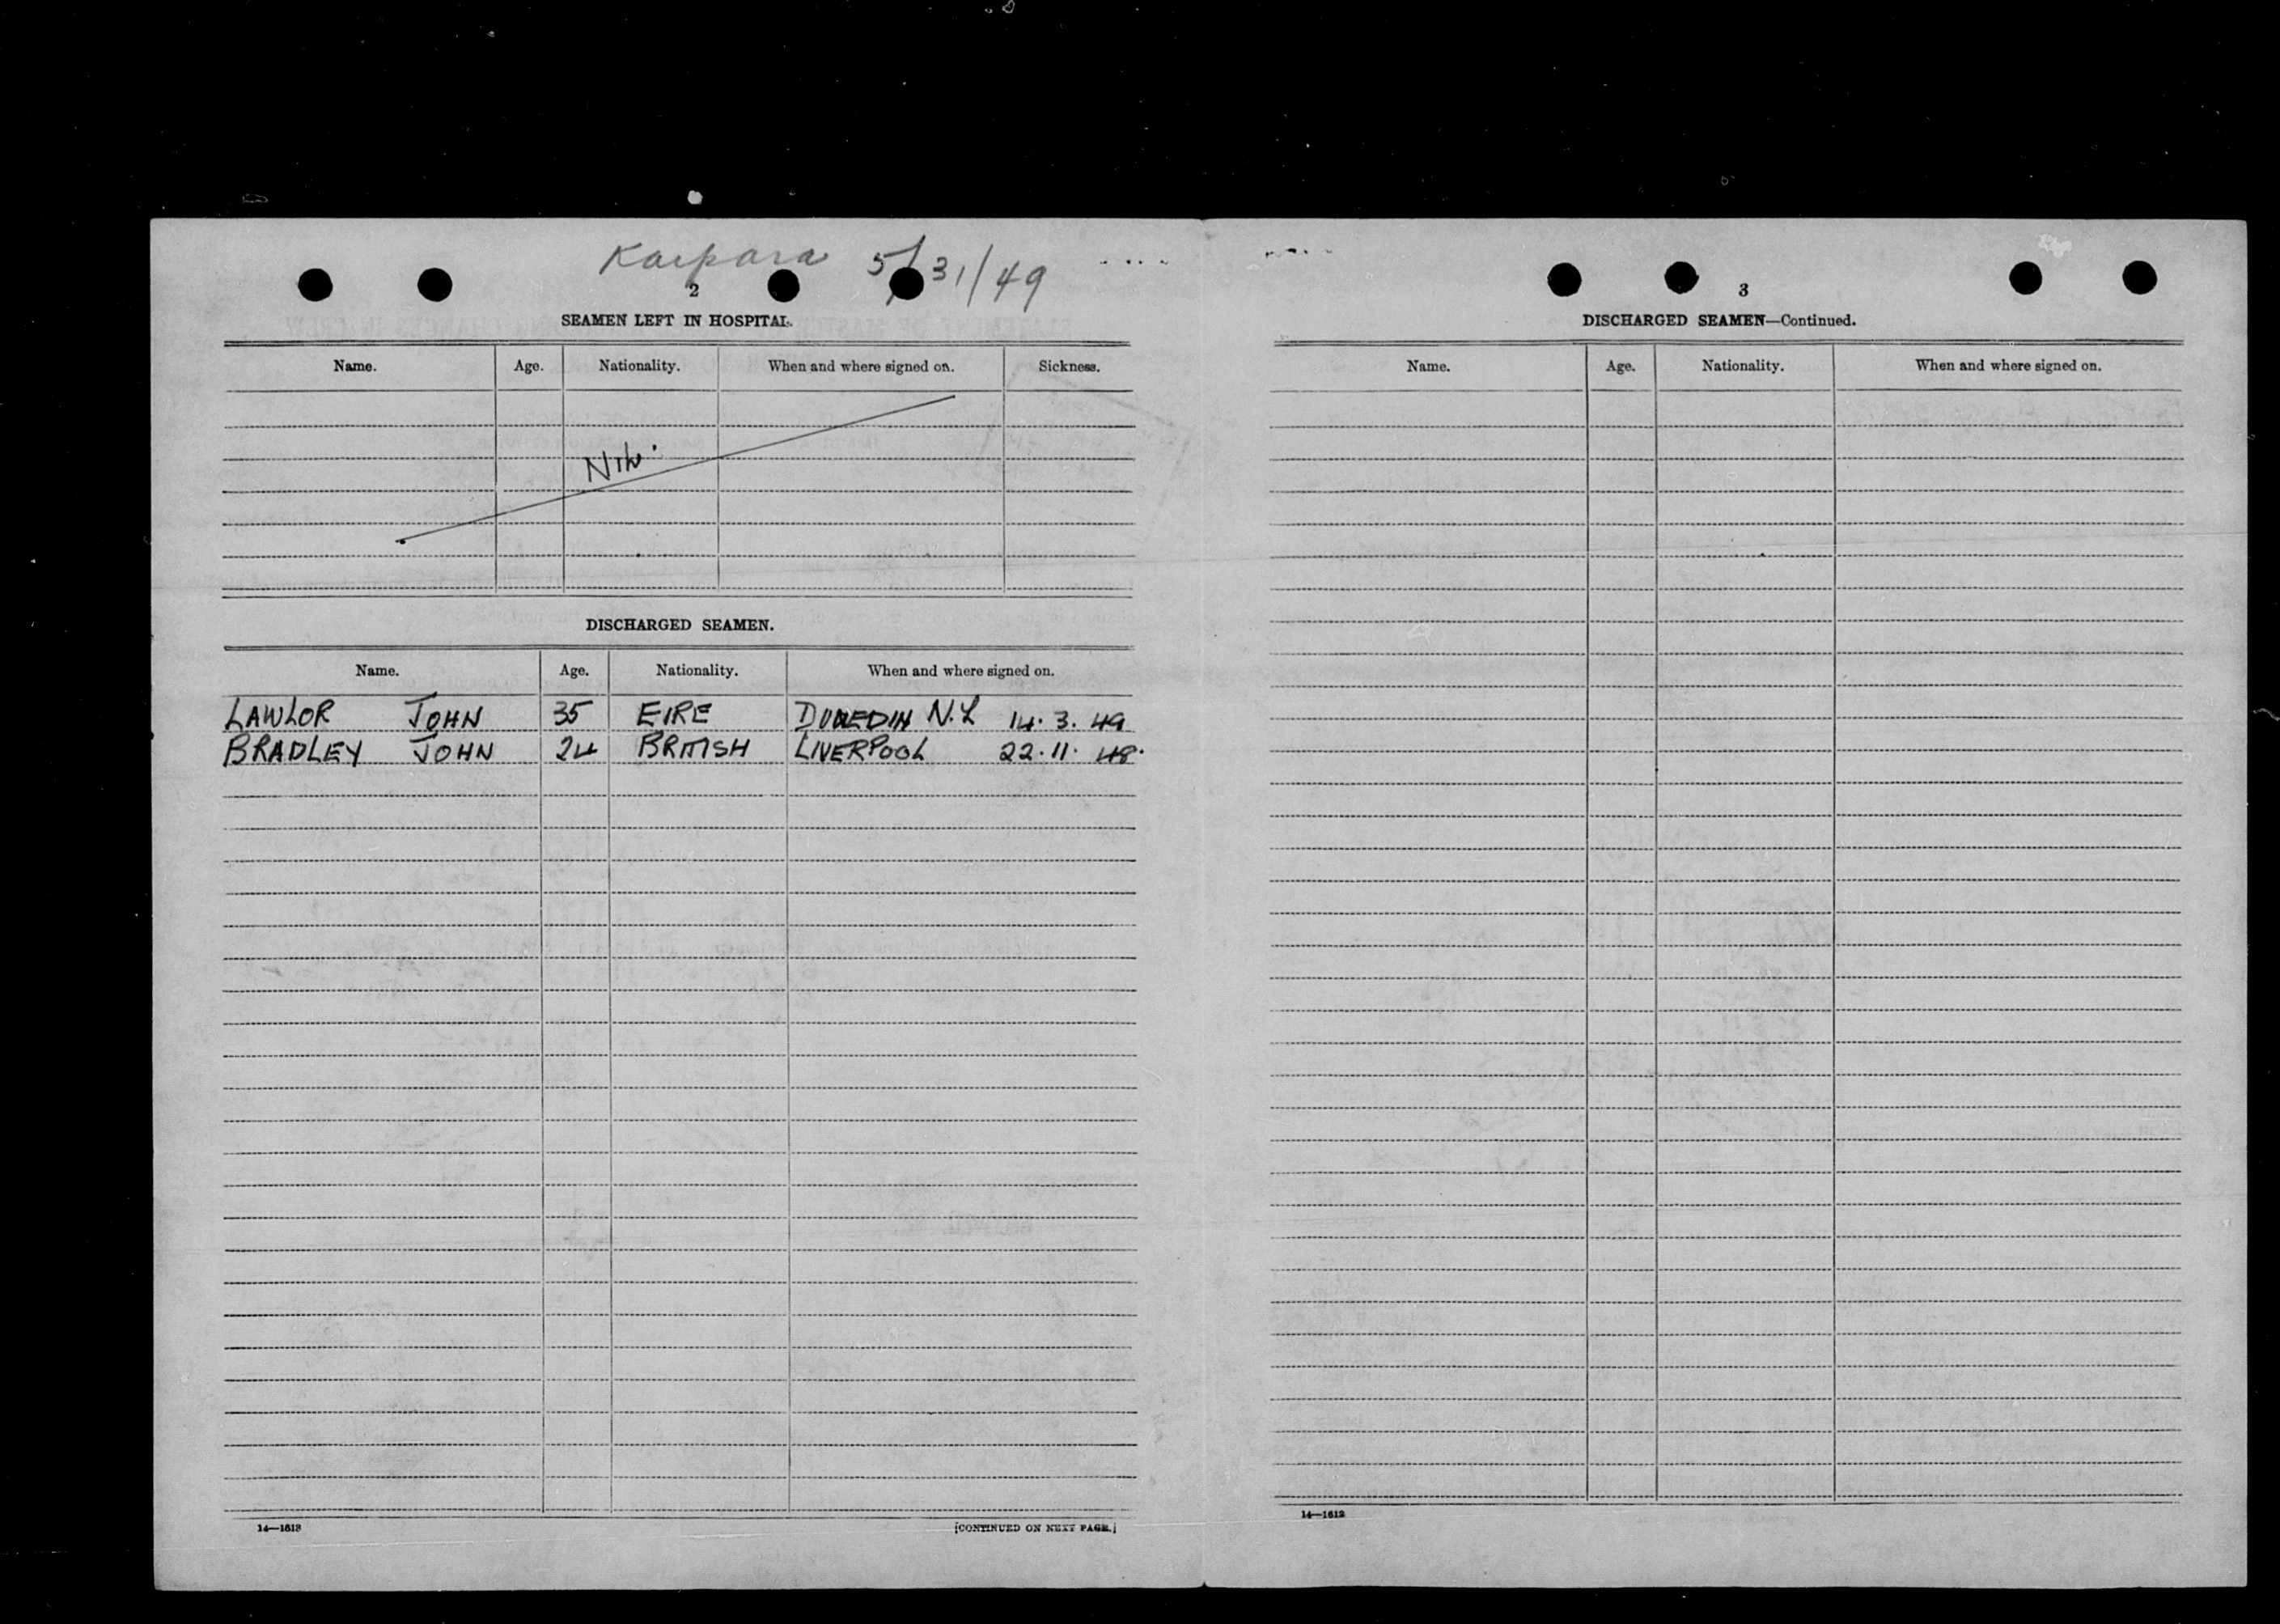 Kaipara 5/31/49
2
SEAMEN LEFT IN HOSPITAL.
Name. Age. Nationality. When and where signed on. Sickness.
NIL.
DISCHARGED SEAMEN.
Name. Age. Nationality. When and where signed on.
LAWLOR JOHN 35 EIRE DUNEDIN N.Z 14.3.49
BRADLEY JOHN 24 BRITISH LIVERPOOL 22.11.48.
14—1613
[CONTINUED ON NEXT PAGE.]
3
DISCHARGED SEAMEN—Continued.
Name. Age. Nationality. When and where signed on.
14—1613